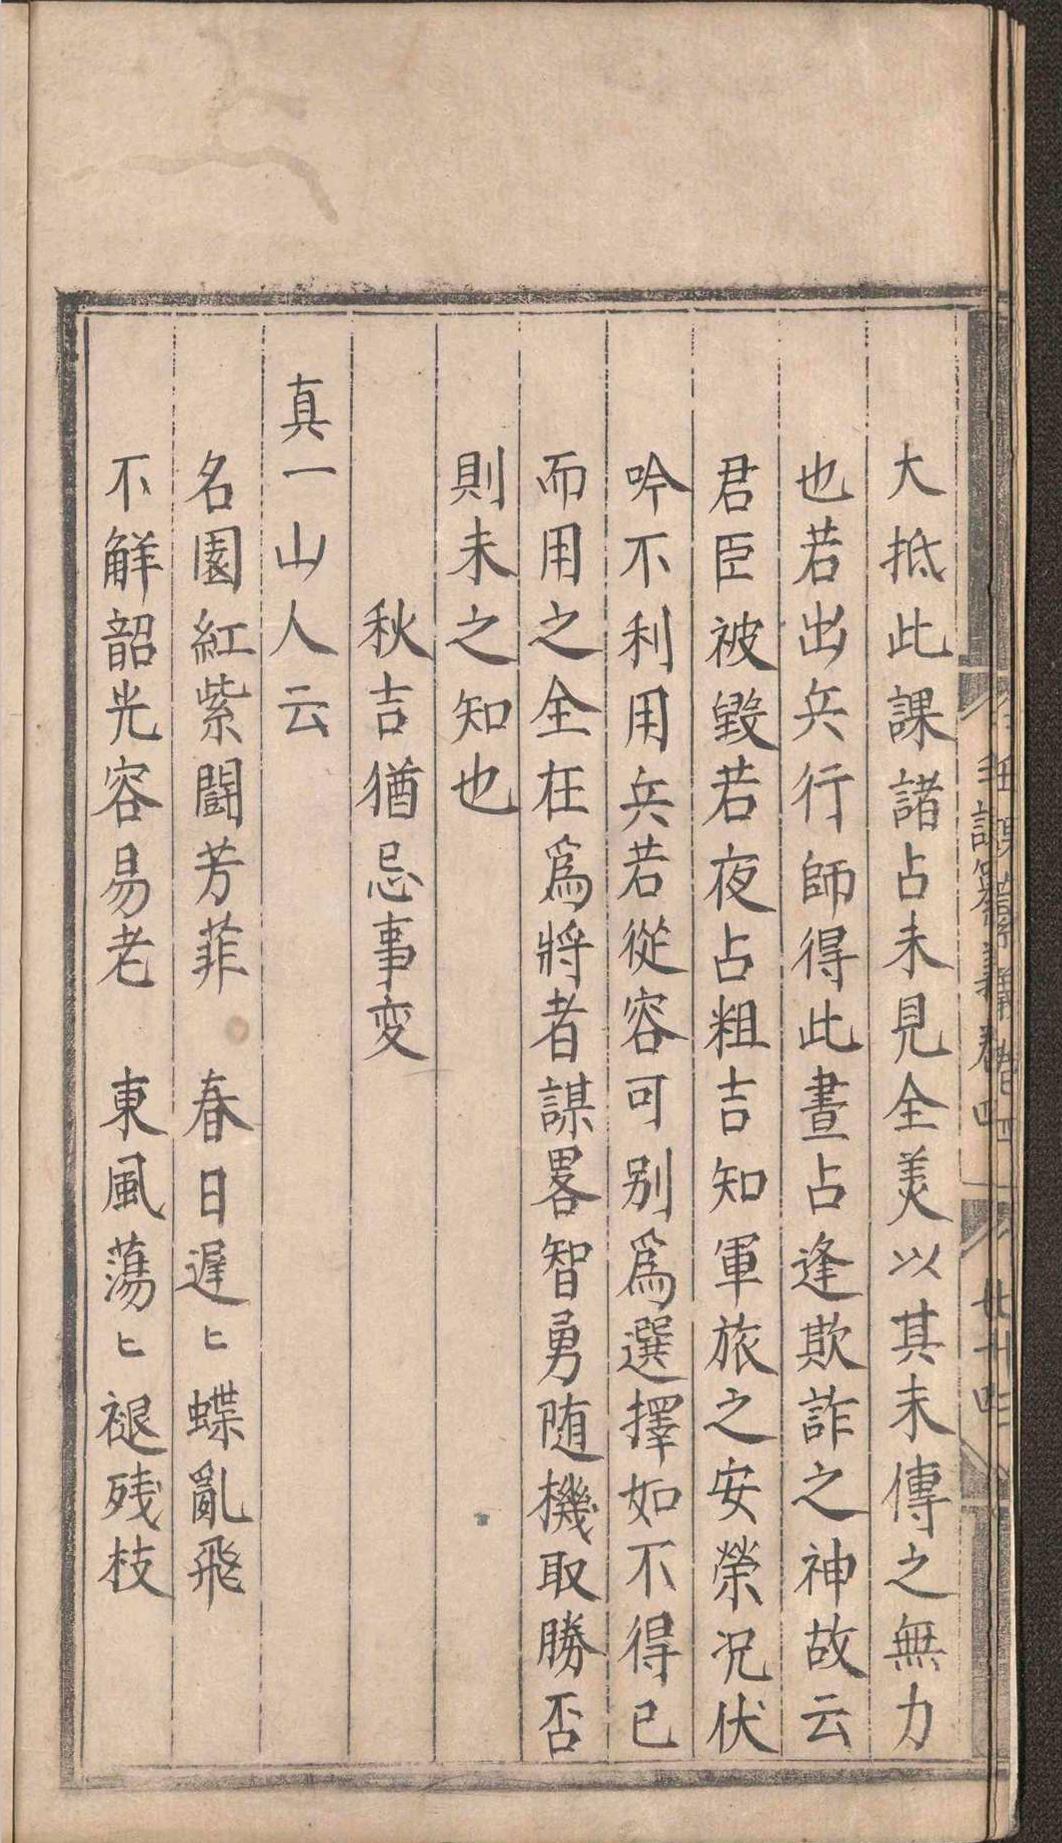 大抵此課諸占未見全美以其末傳之無力
也若出兵行師得此晝占逢欺詐之神故云
君臣被毀若夜占粗吉知軍旅之安榮况伏
吟不利用兵若從容可别爲選擇如不得已
而用之全在爲將者謀畧智勇随機取勝否
則未之知也
秋吉猶忌事変
真一山人云
名園紅紫鬪芳菲　春日遲〻蝶亂飛
不觧韶光容易老　東風蕩〻褪残枝